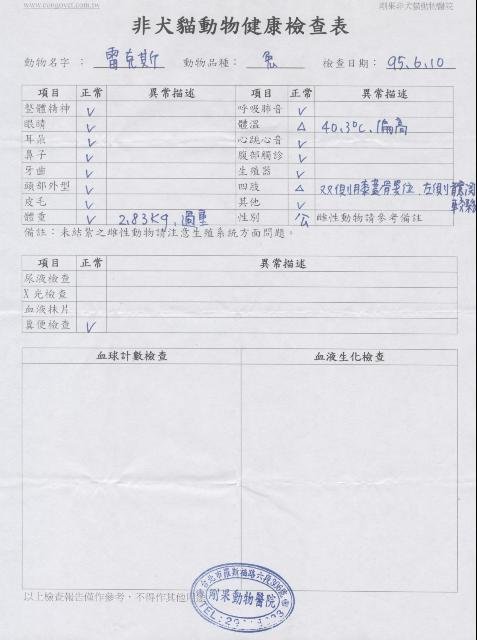 www.congovet.com.tw 剛果非犬貓動物醫院
非犬貓動物健康檢查表
動物名字：雷克斯 動物品種：兔 檢查日期：95.6.10
項目 正常 異常描述 項目 正常 異常描述
整體精神 V 呼吸肺音 V
眼睛 V 體溫 △ 40.3°C, 偏高
耳朵 V 心跳心音 V
鼻子 V 腹部觸診 V
牙齒 V 生殖器 V
頭部外型 V 四肢 △ 双側膝蓋骨異位, 左側
皮毛 V 其他 V
體重 V 2.83kg, 過重 性別 公 雌性動物請參考備註
備註：未結紮之雌性動物請注意生殖系統方面問題。
項目 正常 異常描述
尿液檢查
X光檢查
血液抹片
糞便檢查 V
血球計數檢查 血液生化檢查
台北市羅斯福路六段
剛果動物醫院
TEL:
以上檢查報告僅作參考，不得作其他用途